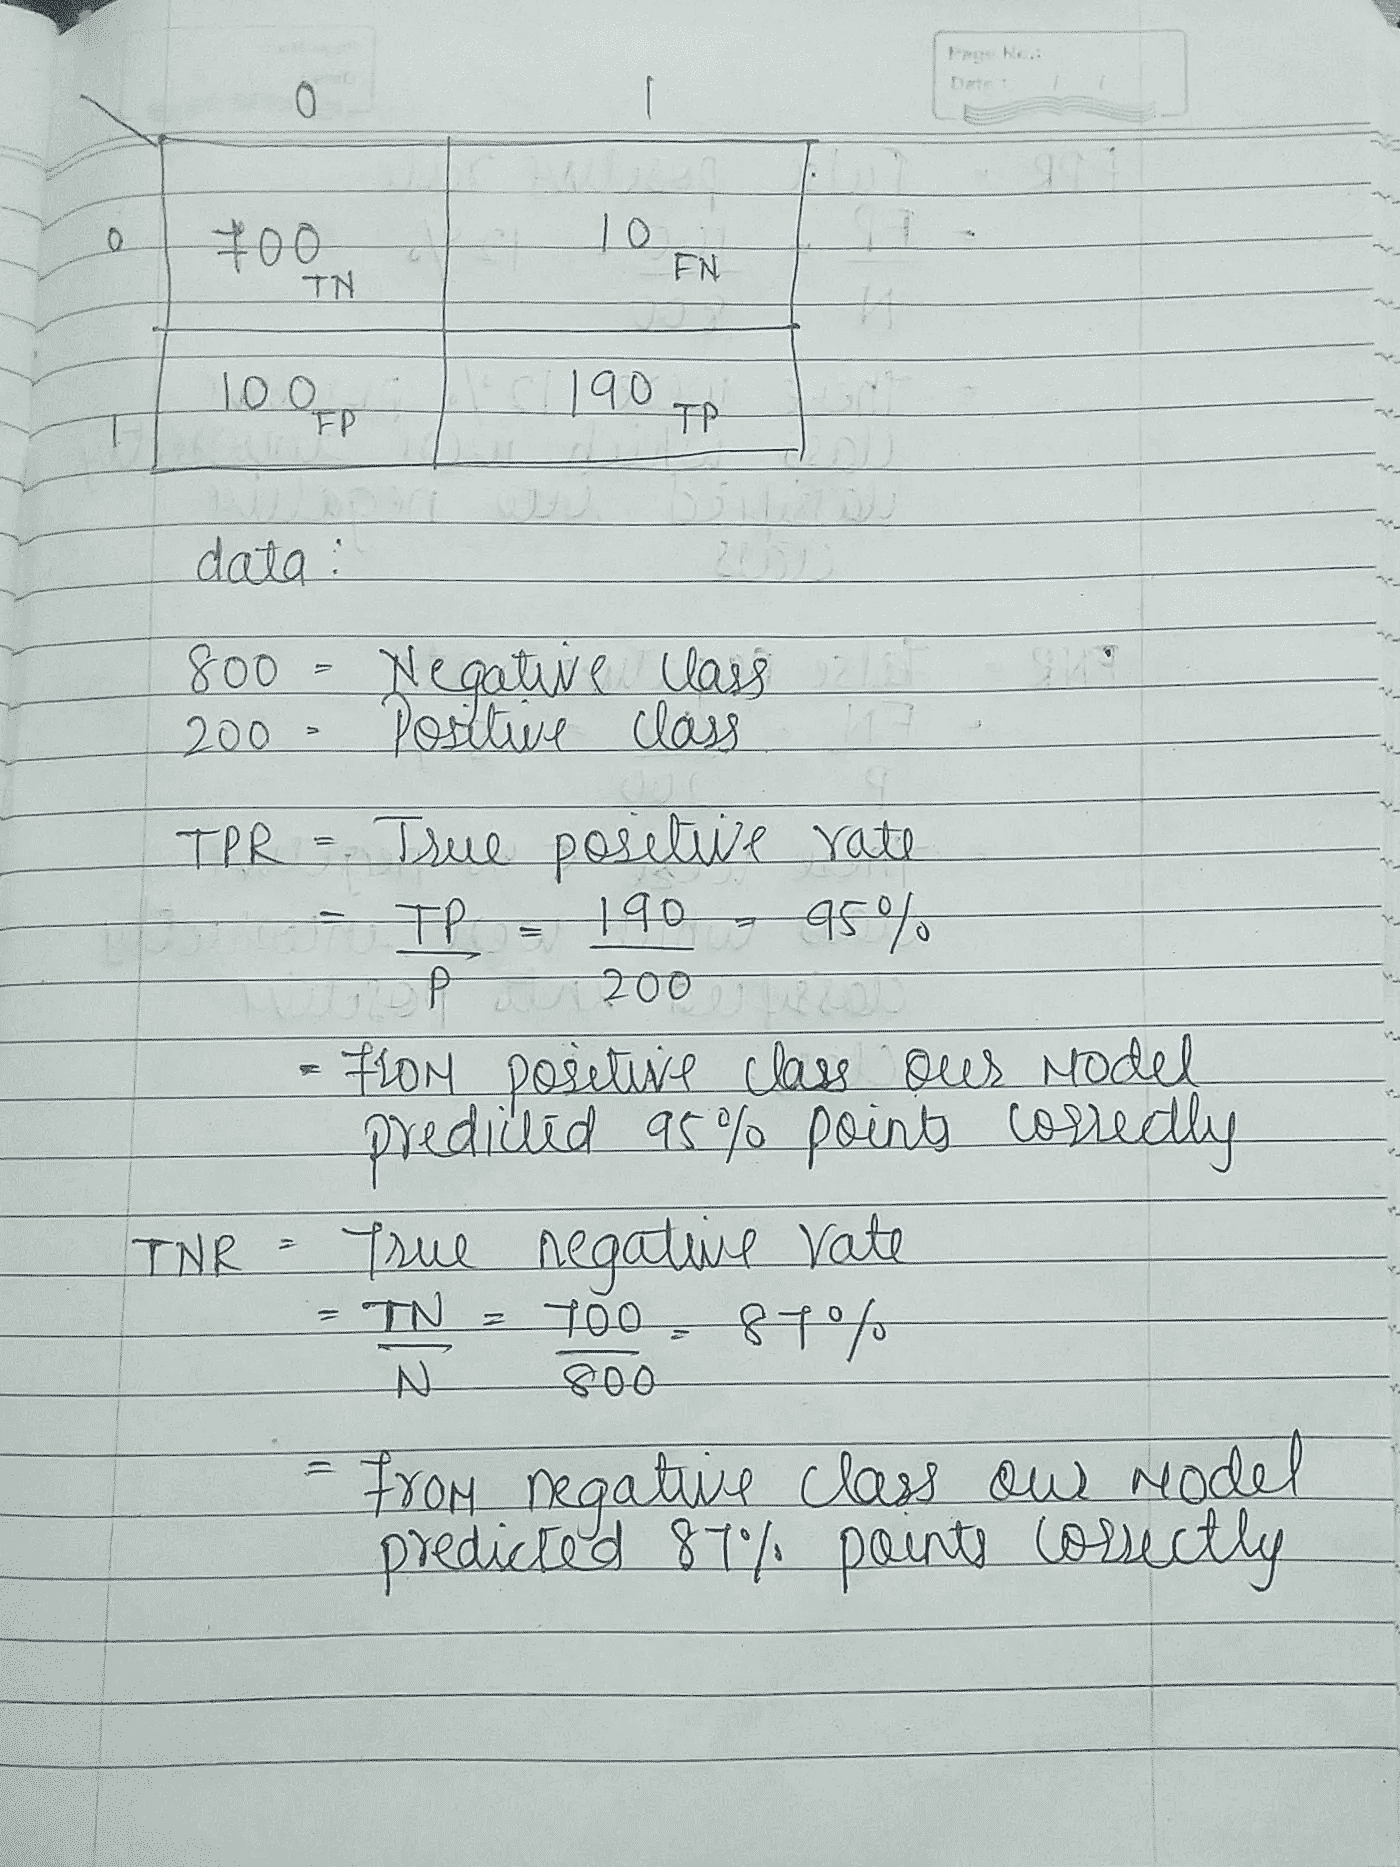 Page No.:
Date : / /
0 1
0 700 TN 10 FN
1 100 FP 190 TP
data :
800 = Negative class
200 = Positive class
TPR = True positive rate
= TP = 190 = 95%
P 200
= From positive class our model
predicted 95% points correctly
TNR = True negative rate
= TN = 700 = 87%
N 800
= From negative class our model
predicted 87% points correctly